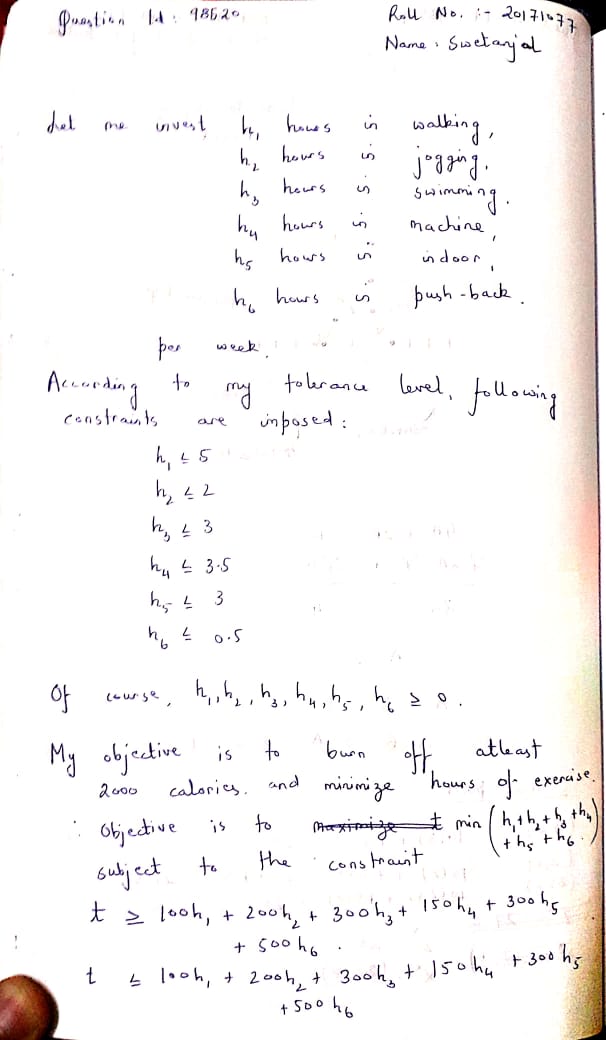 Question Id : 98620
Roll No. :- 20171077
Name : Swetanjal
Let me invest h₁ hours in walking,
h₂ hours in jogging,
h₃ hours in swimming.
h₄ hours in machine,
h₅ hours in indoor,
h₆ hours in push-back.
per week.
According to my tolerance level, following
constraints are imposed :
h₁ ≤ 5
h₂ ≤ 2
h₃ ≤ 3
h₄ ≤ 3.5
h₅ ≤ 3
h₆ ≤ 0.5
Of course, h₁, h₂, h₃, h₄, h₅, h₆ ≥ 0.
My objective is to burn off atleast
2000 calories. and minimize hours of exercise.
∴ Objective is to maximize t min (h₁+h₂+h₃+h₄
+h₅+h₆.)
subject to the constraint
t ≥ 100h₁ + 200h₂ + 300h₃ + 150h₄ + 300h₅
+ 500h₆.
t ≤ 100h₁ + 200h₂ + 300h₃ + 150h₄ + 300h₅
+500h₆